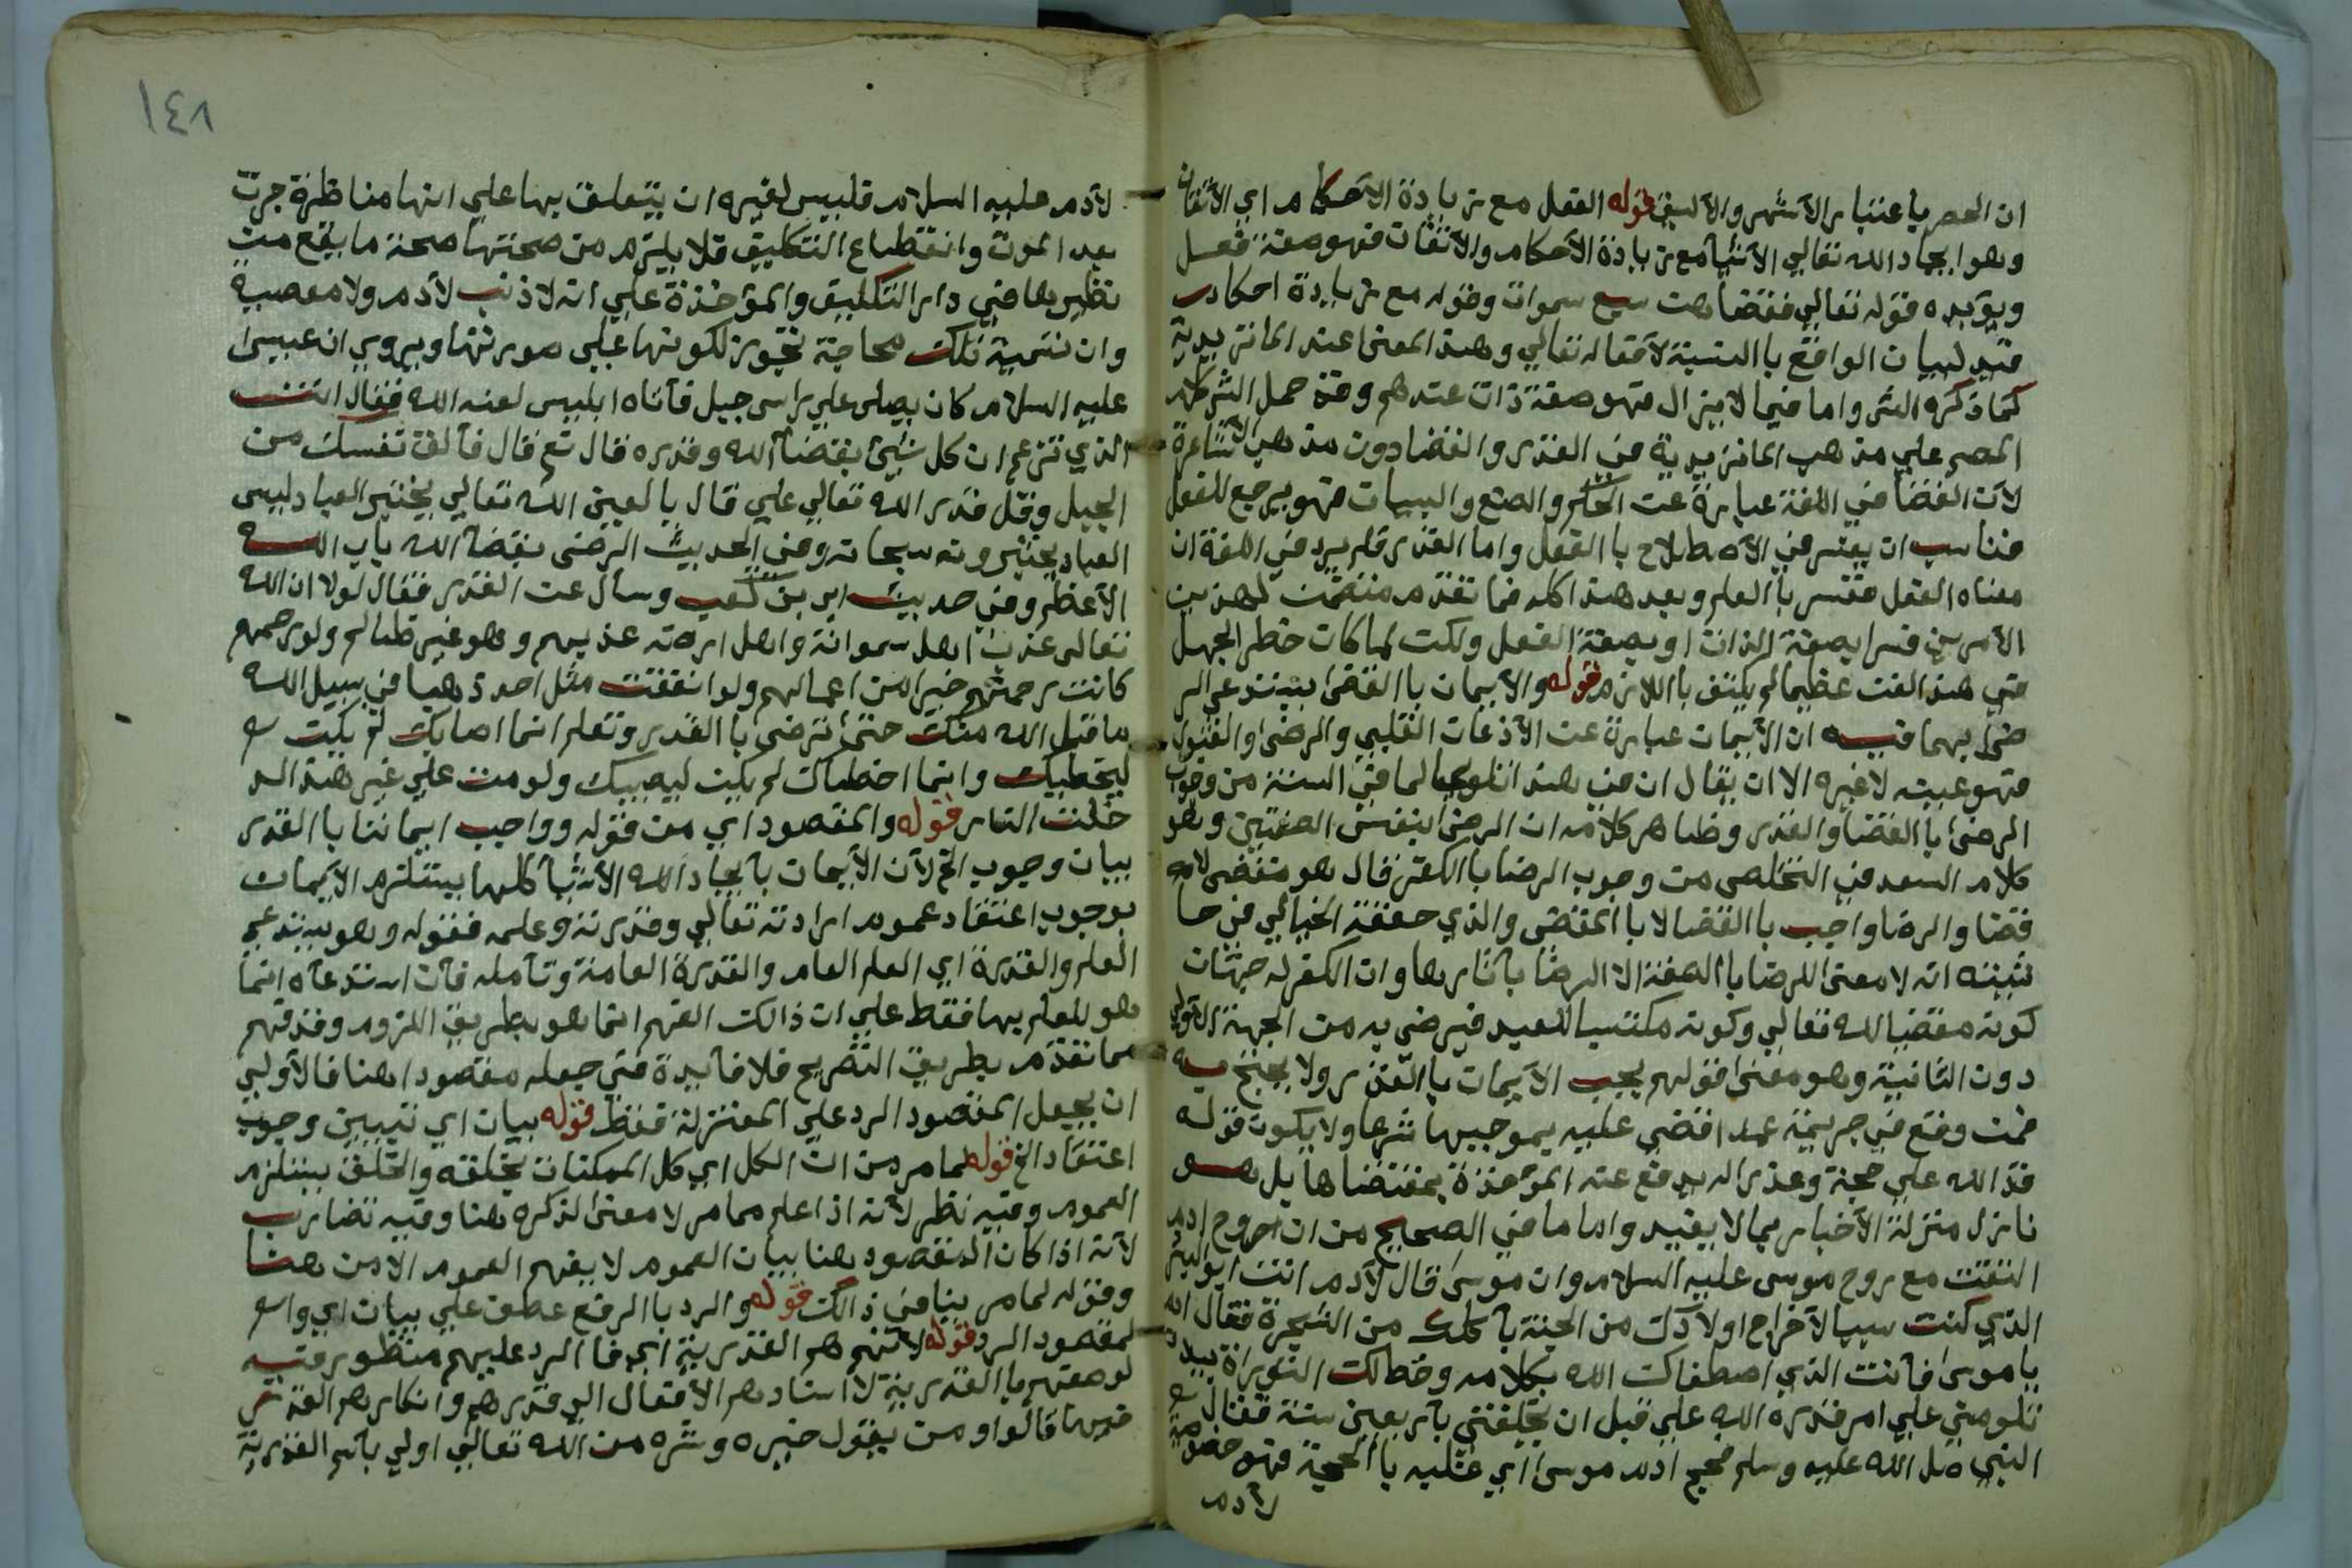 ان الحصر باعتبار الأشهر والأليق قوله الفعل مع زيادة الأحكام اي الاتقان
وهو ايجاد الله تعالي الأشيآ مع زيادة الأحكام والأتقان فهو صفة فعل
ويؤيده قوله تعالي فقضاهن سبع سموات وقوله مع زيادة احكام
قيد لبيان الواقع باالنسبة لأفعاله تعالي وهذا المعنى عند الماتريدية
كما ذكره الش واما فيما لايزال فهو صفة ذات عندهم وقد حمل الش كلام
المص علي مذهب الماتريدية في القدر والقضا دون مذهب الأشاعرة
لأن القضا في اللغة عبارة عن الحكم والصنع والبيان فهو يرجع للفعل
فناسب ان يفسر في الأصطلاح باالفعل واما القدر فلم يرد في اللغة ان
معناه الفعل ففسر باالعلم وبعد هذا كله فما تقدم متضمن لهذين
الأمرين فسرا بصفة الذات او بصفة الفعل ولكن لما كان خطر الجهل
في هذا الفن عظيما لم يكتف باللازم قوله والأيمان باالقضى يستدعي الر
ضى بهما فيه ان الأيمان عبارة عن الأذعان القلبي والرضى والقبول
فهو عينه لاغيره الا ان يقال ان في هذا تلويحا لما في السنة من وجوب
الرضى باالقضا والقدر وظاهر كلامه ان الرضى بنفس الصفتين وهو
كلام السعد في التخلص من وجوب الرضا باالكفر فال هو مقضى لا
قضا والرضا واجب باالقضا لا باالمقضى والذي حققه الخيالي في حا
شيته انه لا معنى للرضا باالصفة الا الرضا بآثارها وان الكفر له جهتان
كونه مقضيا لله تعالي وكونه مكتسبا للعبد فيرضى به من الجهة الاولي
دون الثانية وهو معنى قولهم يجب الأيمان باالقدر ولا يحتج به
فمن وقع في جريمة عمدا قضي عليه بموجبها شرعا ولا يكون قوله
قدر الله علي حجة وعذرا له يدفع عنه المؤاخذة بمقتضاها بل هو
نازل منزلة الأخبار بما لا يفيد واما ما في الصحيح من ان روح ادم
التقت مع روح موسى عليه السلام وان موسى قال لأدم انت ابو البشر
الذي كنت سببا لأخراج اولادك من الجنة بأكلك من الشجرة فقال له
يا موسى فأنت الذي اصطفاك الله بكلامه وخط لك التوراة بيده
تلومني علي امر قدره الله علي قبل ان يخلقني بأربعين سنة فقال
النبي صل الله عليه وسلم فحج ادم موسى اي غلبه باالحجة فهو خصوصية
لآدم
١٤٨
لآدم عليه السلام فليس لغيره ان يتعلق بها علي انها مناظرة جرت
بعد الموت وانقطاع التكليف فلا يلتزم من صحتها صحة ما يقع من
نظيرها في دار التكليف والمؤخذة علي انه لاذنب لأدم ولا معصية
وان تسمية تلك محاجة تجوز لكونها علي صورتها ويروي ان عيسى
عليه السلام كان يصلي علي راس جبل فأتاه ابليس لعنه الله فقال انت
الذي تزعم ان كل شئ بقضآ الله وقدره قال نع قال فألق نفسك من
الجبل وقل قدر الله تعالي علي قال يا لعين الله تعالي يختبر العباد ليس
العباد يختبرونه سبحانه وفي الحديث الرضى بقضآ الله باب الله
الأعظم وفي حديث ابي بن كعب وسأل عن القدر فقال لولا ان الله
تعالى عذب اهل سمواته واهل ارضه عذبهم وهو غير ظالم ولو رحمهم
كانت رحمتهم خيرا من اعمالهم ولو انفقت مثل احد ذهبا في سبيل الله
ما قبل الله منك حتى ترضى باالقدر وتعلم انما اصابك لم يكن
ليخطيك وانما اخطاك لم يكن ليصيبك ولو مت علي غير هذا لد
خلت النار قوله والمقصود اي من قوله وواجب ايماننا باالقدر
بيان وجوب الخ لأن الأيمان بأيجاد الله الأشيآ كلها يستلزم الأيمان
بوجوب اعتقاد عموم ارادته تعالي وقدرته وعلمه فقوله وهو يستدعي
العلم والقدرة اي العلم العام والقدرة العامة وتأمله فأن استدعآه انما
هو للعلم بها فقط علي ان ذالك الفهم انما هو بطريق اللزوم وقد فهم
مما تقدم بطريق التصريح فلا فآيدة في جعله مقصودا هنا فاالأولي
ان يجعل المقصود الرد علي المعتزلة فقط قوله بيان اي تبيين وجوب
اعتقاد الخ قوله لما مر من ان الكل اي كل الممكنات بخلقه والخلق يستلزم
العموم وفيه نظر لأنه اذا علم مما مر لا معنى لذكره هنا وفيه تضارب
لأنه اذا كان المقصود هنا بيان العموم لا يفهم العموم الا من هنا
وقوله لما مر ينافي ذالك قوله والرد باالرفع عطف علي بيان اي وا
لمقصود الرد قوله لأنهم هم القدرية اي فاالرد عليهم منظور فيه
لوصفهم باالقدرية لااسنادهم الأفعال الي قدرهم وانكارهم القدر
فيها قالوا ومن يقول خيره وشره من الله تعالي اولي بأسم القدرية